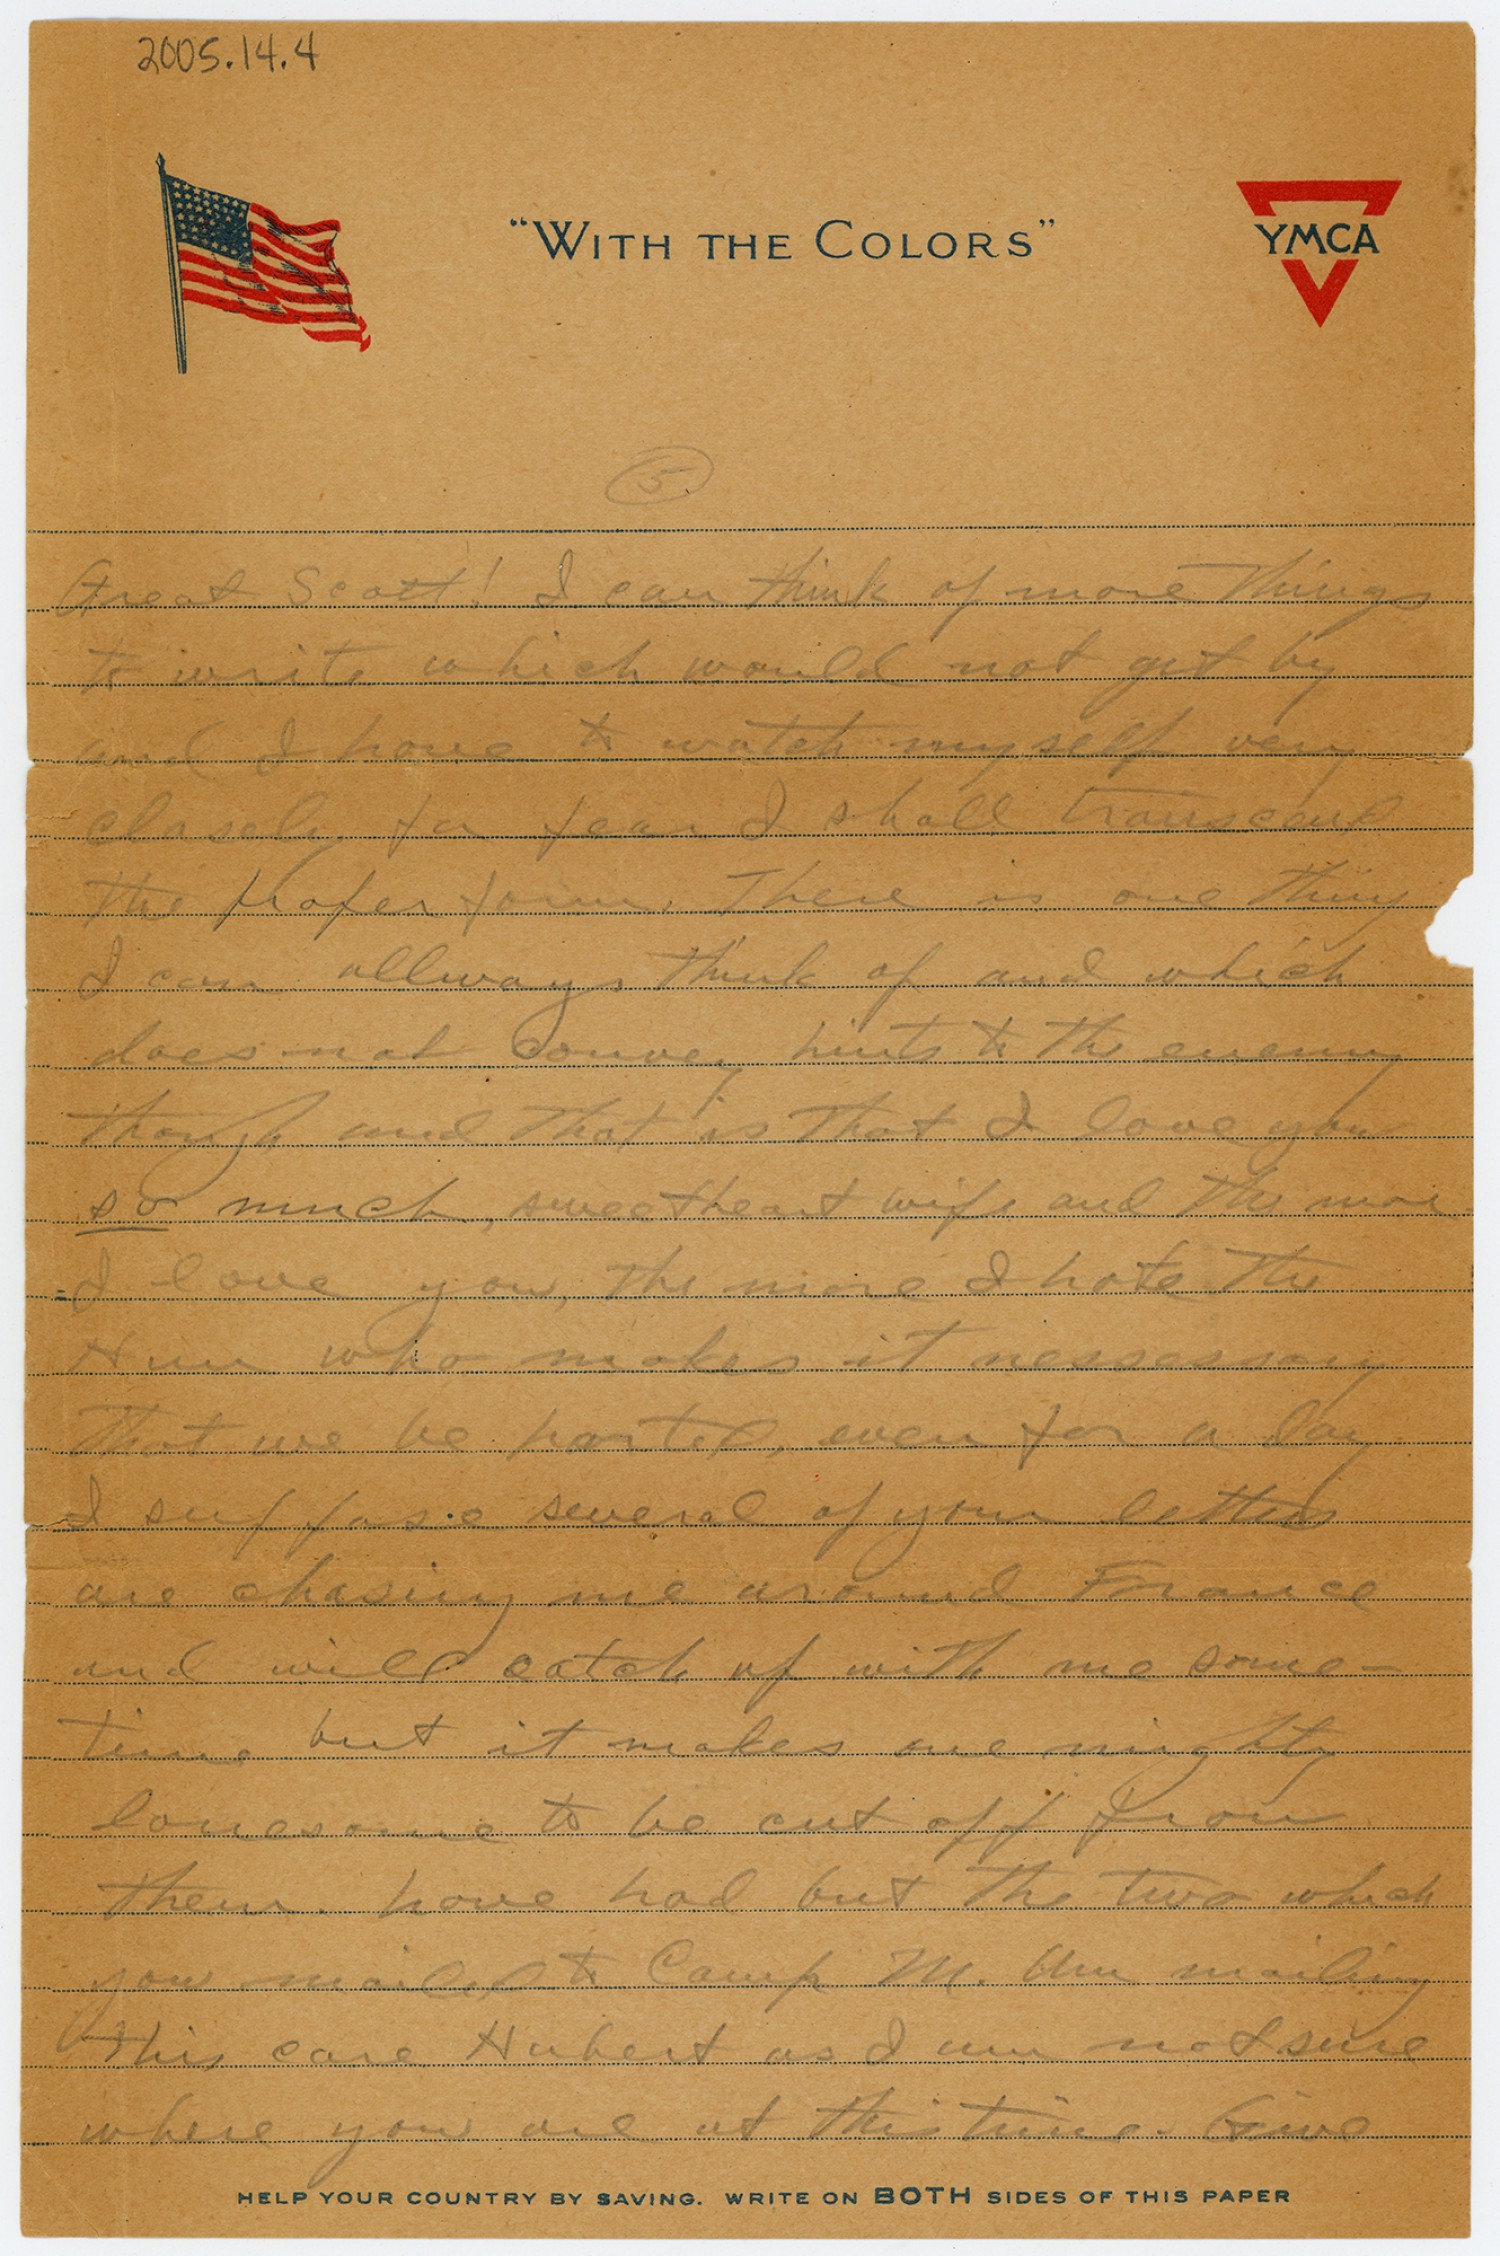 2005.14.4
"WITH THE COLORS"
YMCA
5
Great Scott! I can think of more things
to write which would not get by
and I have to watch myself very
closely for fear I shall transcend
the proper form. There is one thing
I can allways think of and which
does not convey hints to the enemy
though and that is that I love you
so much, sweetheart wife and the more
I love you, the more I hate the
Hun who makes it nessessary
that we be parted, even for a day.
I suppose several of your letters
are chasing me around France
and will catch up with me some-
time but it makes one mighty
lonesome to be cut off from
them. have had but the two which
you mailed to Camp M. Am mailing
this care Hubert as I am not sure
where you are at this time. Give
HELP YOUR COUNTRY BY SAVING. WRITE ON BOTH SIDES OF THIS PAPER